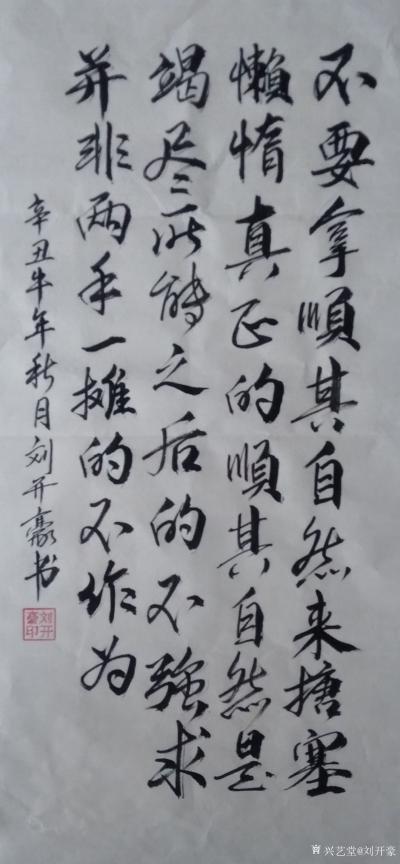 不要拿順其自然来搪塞
懒惰真正的順其自然是
竭尽所能之后的不强求
并非两手一摊的不作为
辛丑牛年秋月刘开豪书
刘开豪印
兴艺堂@刘开豪